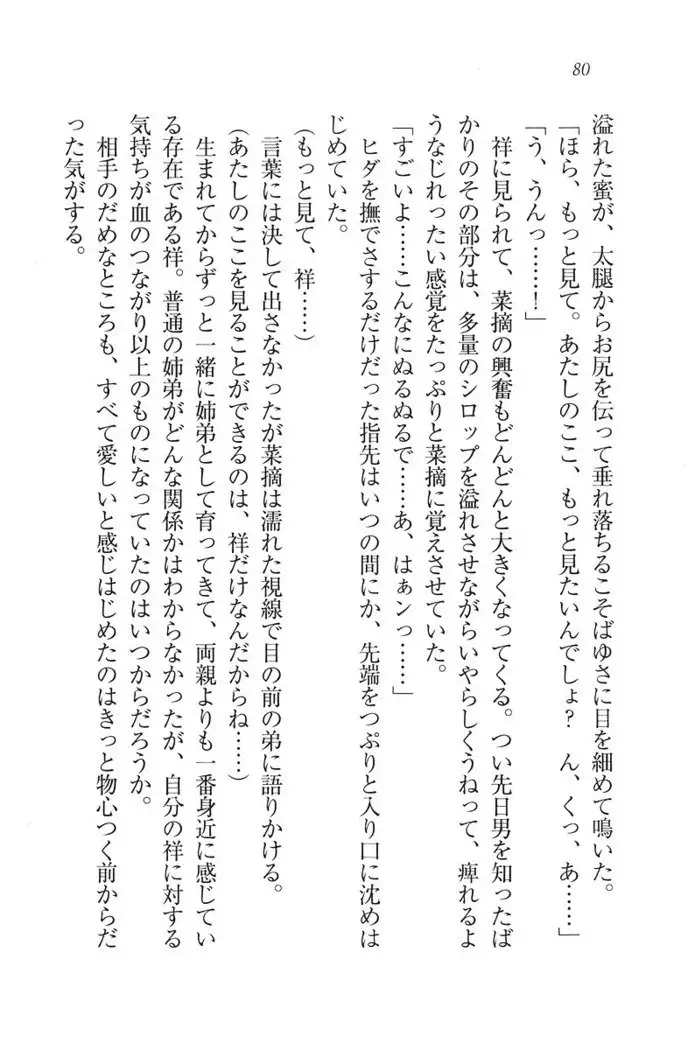 80
溢れた蜜が、太腿からお尻を伝って垂れ落ちるこそばゆさに目を細めて鳴いた。
「ほら、もっと見て。あたしのここ、もっと見たいんでしょ？　ん、くっ、あ……」
「う、うんっ……！」
祥に見られて、菜摘の興奮もどんどんと大きくなってくる。つい先日男を知ったば
かりのその部分は、多量のシロップを溢れさせながらいやらしくうねって、痺れるよ
うなじれったい感覚をたっぷりと菜摘に覚えさせていた。
「すごいよ……こんなにぬるぬるで……あ、はぁンっ……」
ヒダを撫でさするだけだった指先はいつの間にか、先端をつぷりと入り口に沈めは
じめていた。
（もっと見て、祥……）
言葉には決して出さなかったが菜摘は濡れた視線で目の前の弟に語りかける。
（あたしのここを見ることができるのは、祥だけなんだからね……）
生まれてからずっと一緒に姉弟として育ってきて、両親よりも一番身近に感じてい
る存在である祥。普通の姉弟がどんな関係かはわからなかったが、自分の祥に対する
気持ちが血のつながり以上のものになっていたのはいつからだろうか。
相手のだめなところも、すべて愛しいと感じはじめたのはきっと物心つく前からだ
った気がする。